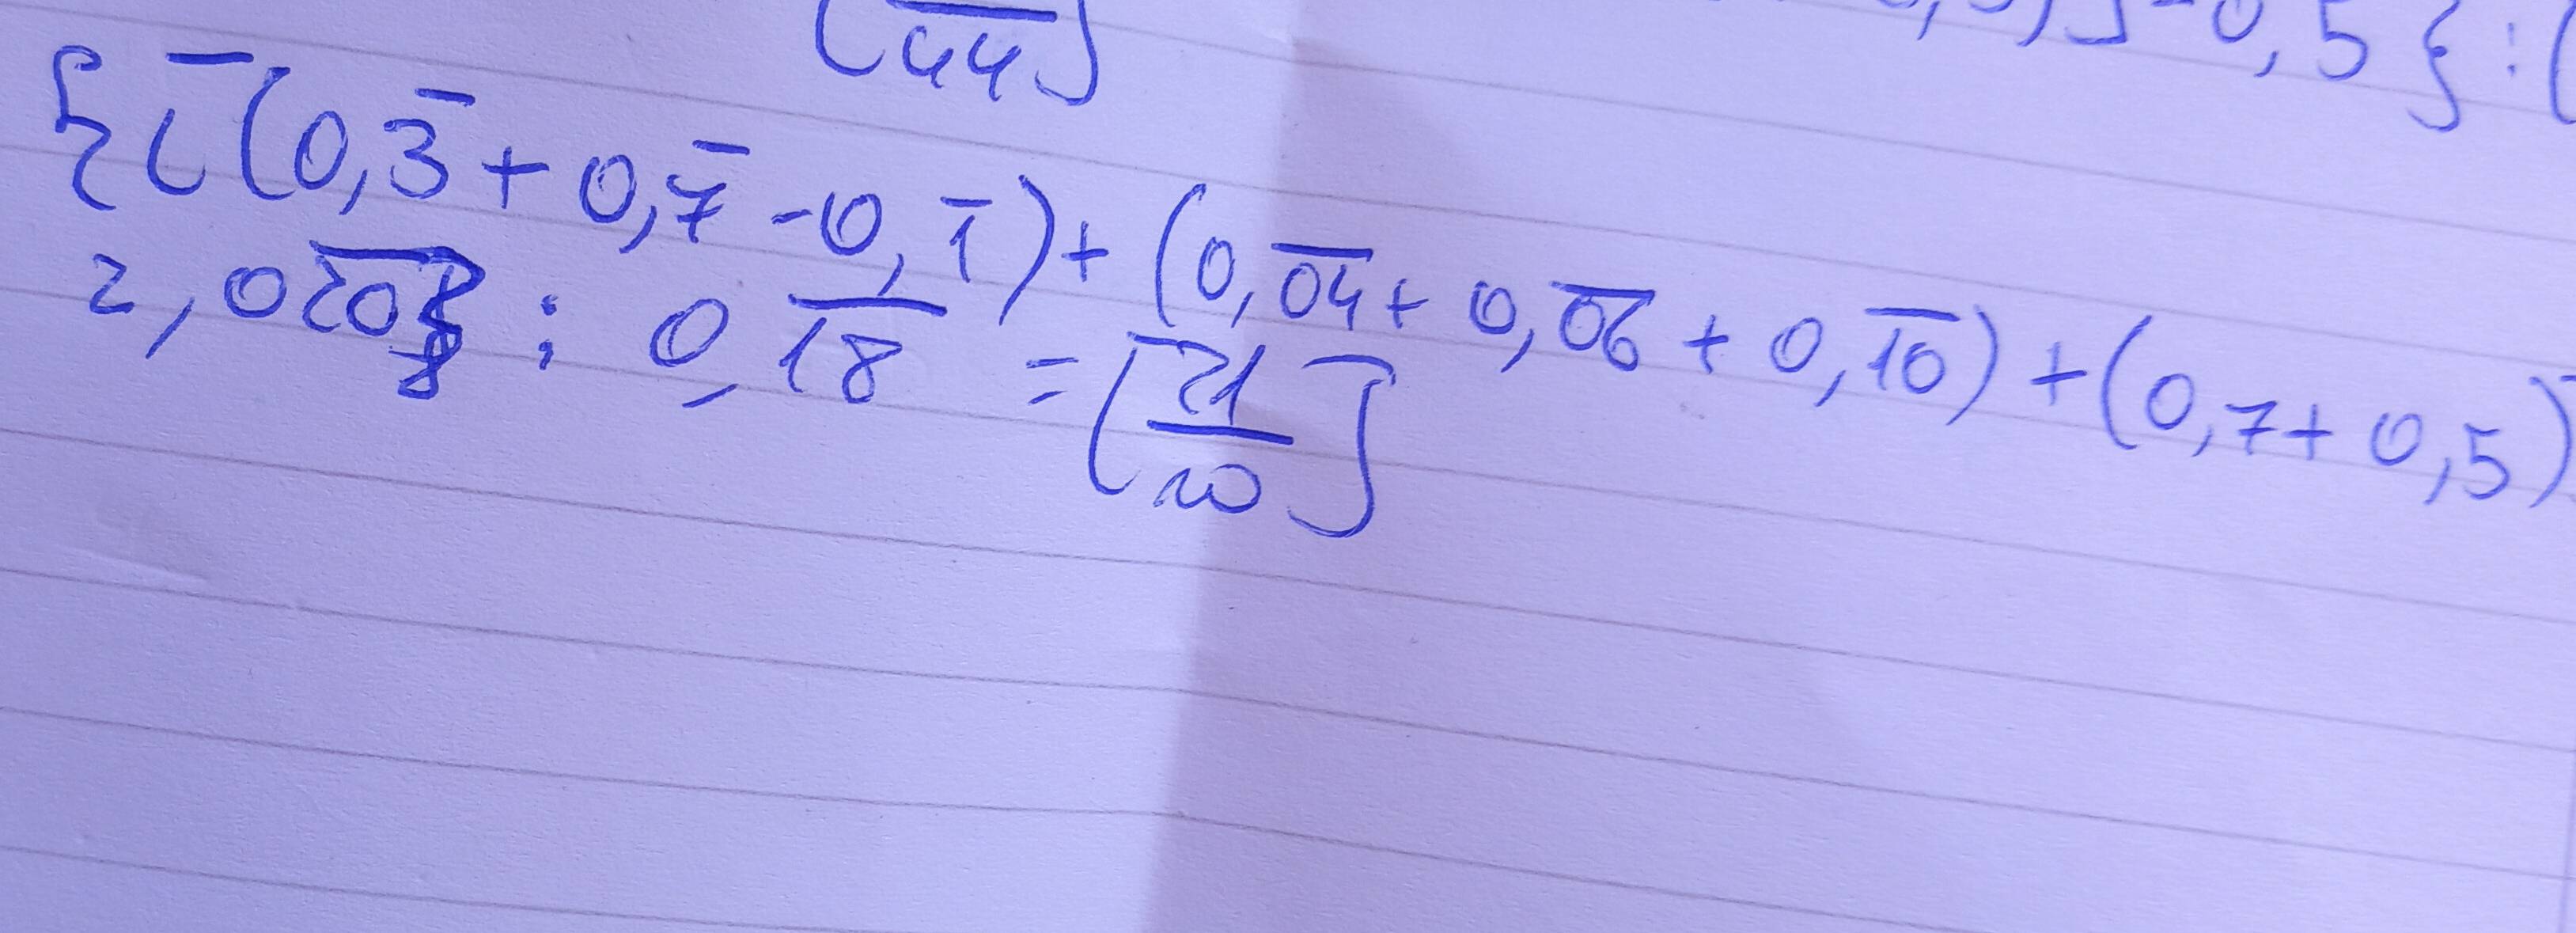 0,5}:(
[/44]
{[(0,3̅ + 0,7̅ - 0,1̅) + (0,0̅4̅ + 0,0̅6̅ + 0,1̅0̅) + (0,7 + 0,5)
2,02̅0̅} : 0,1̅8̅ = [21/10]